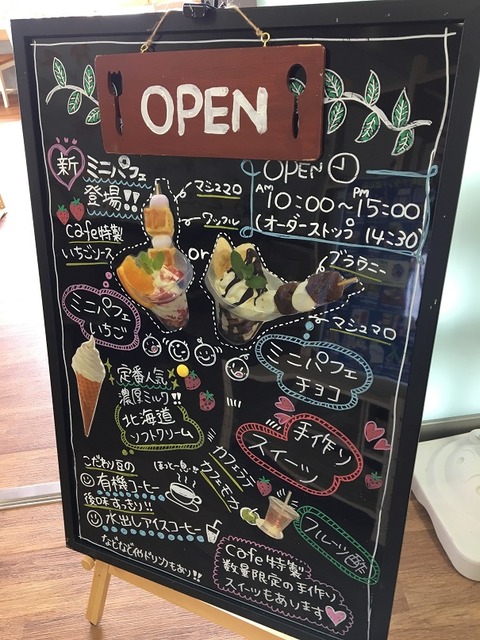 OPEN
新 ミニパフェ
登場!!
cafe特製
いちごソース
マシュマロ
ワッフル
or
OPEN
AM 10:00〜PM 15:00
(オーダーストップ 14:30)
ブラウニー
マシュマロ
ミニパフェ
いちご
ミニパフェ
チョコ
定番人気
濃厚ミルク!!
北海道
ソフトクリーム
手作り
スイーツ
こだわり豆の
有機コーヒー
ほっと一息
カフェラテ
カフェモカ
後味すっきり!!
水出しアイスコーヒー
フルーツ酢
などなど他ドリンクもあり!!
cafe特製
数量限定の手作り
スイーツもあります